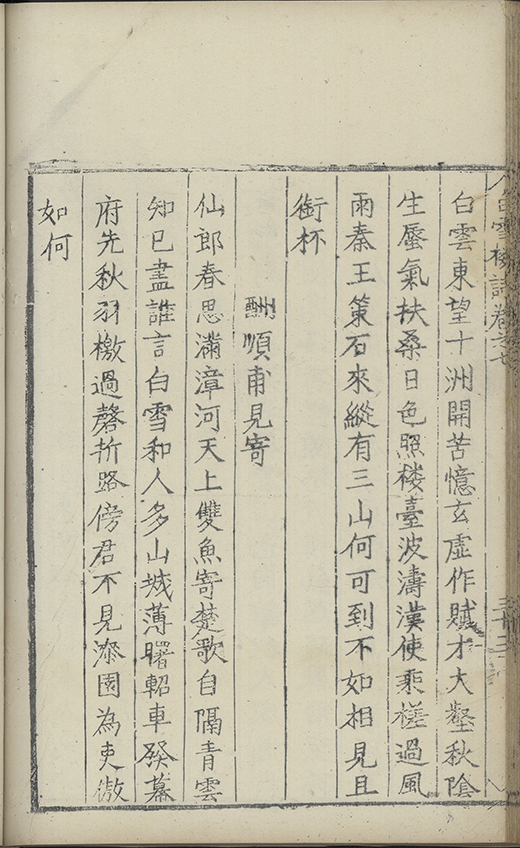 白雲樓詩卷之七
白雲東望十洲開苦憶玄虛作賦才大壑秋陰
生蜃氣扶桑日色照楼臺波濤漢使乘槎過風
雨秦王策石來縱有三山何可到不如相見且
銜杯
酬順甫見寄
仙郎春思滿漳河天上雙魚寄楚歌自隔青雲
知已盡誰言白雪和人多山城薄曙軺車發幕
府先秋羽檄過磬折路傍君不見漆園為吏傲
如何